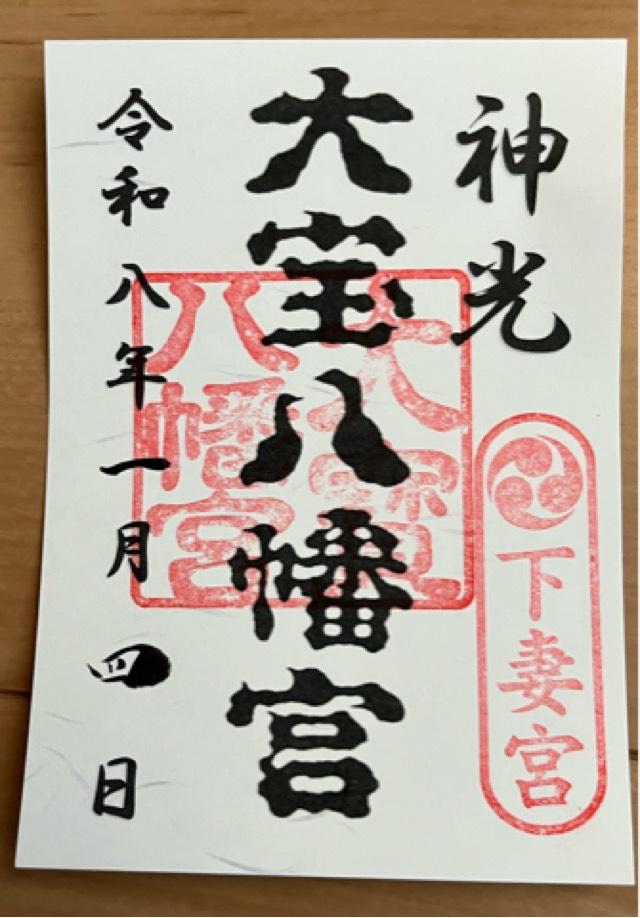 神光
下妻宮
大宝八幡宮
大寶
八幡宮
令和八年一月四日